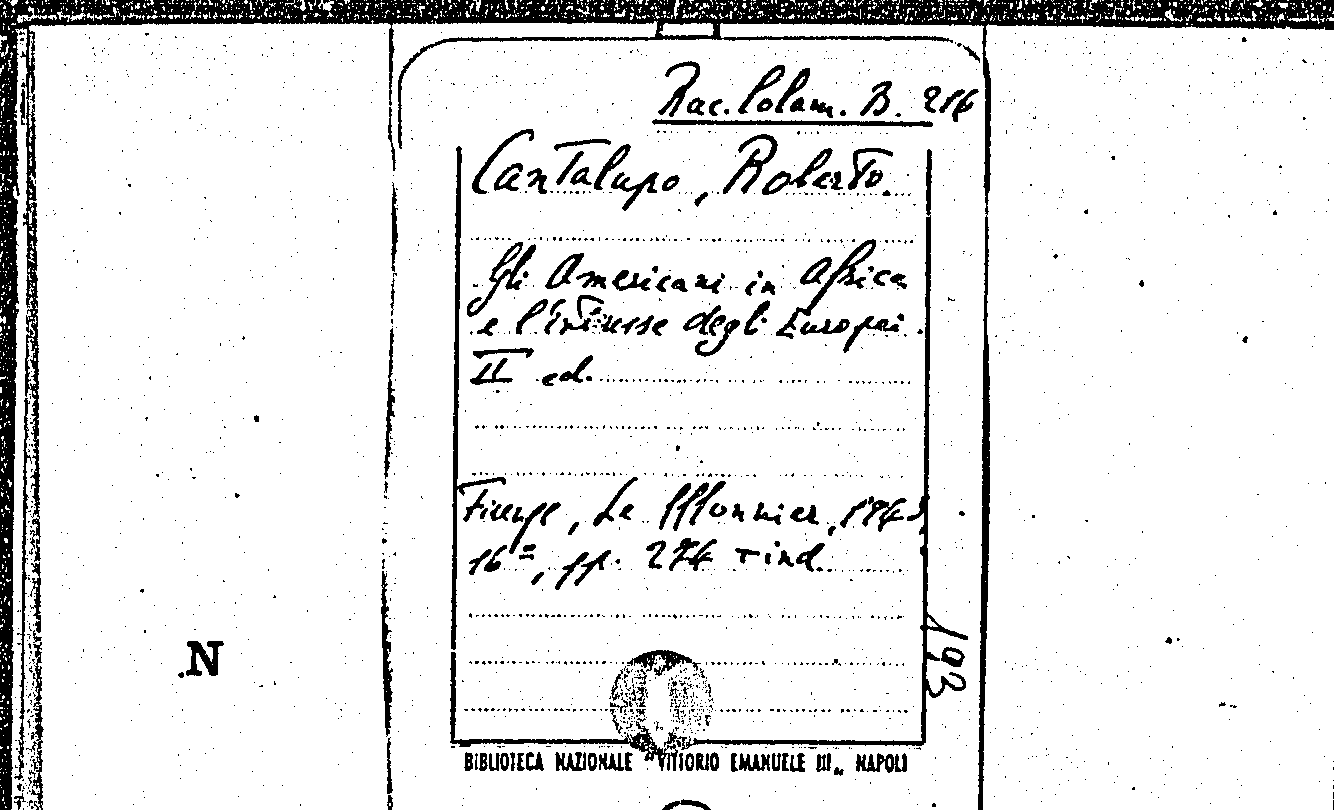 Rac. Colam. B. 216
Cantalupo, Roberto.
Gli Americani in Africa
e l'interesse degli Europei.
II ed.
Firenze, Le Monnier,
16º, pp. 274 + ind.
193
N
BIBLIOTECA NAZIONALE "VITTORIO EMANUELE III„ NAPOLI